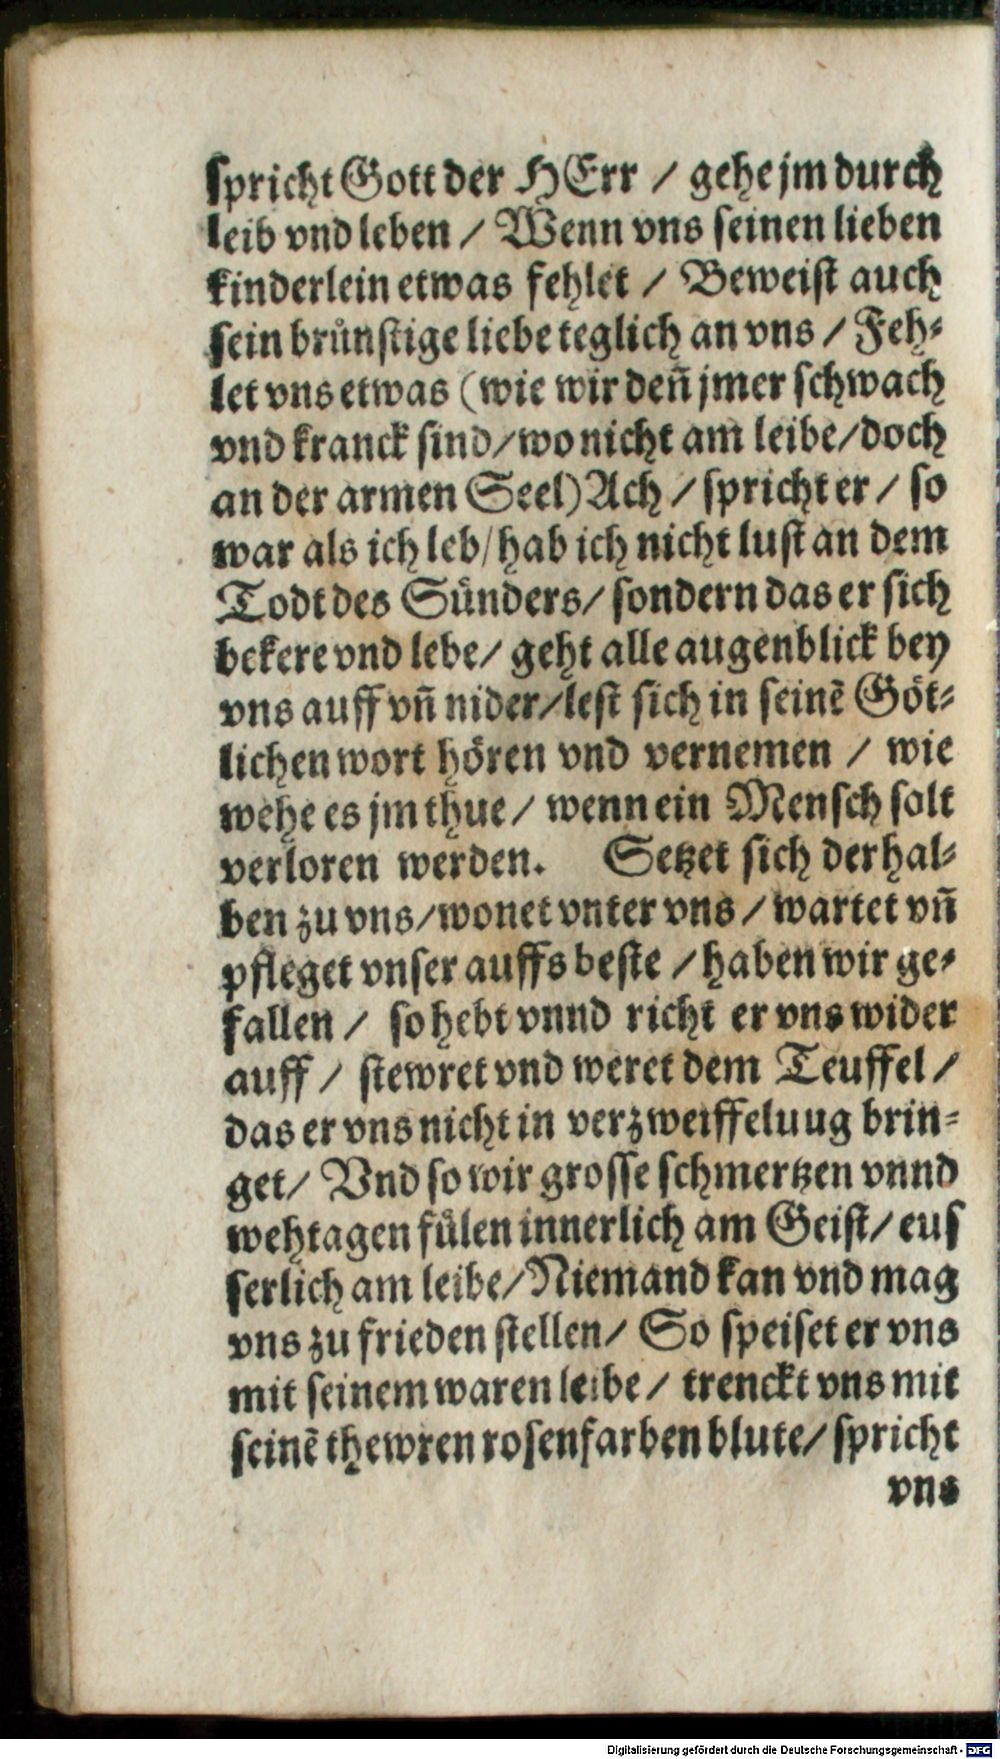 spricht Gott der HErr / gehe jm durch
leib vnd leben / Wenn vns seinen lieben
kinderlein etwas fehlet / Beweist auch
sein brůnstige liebe teglich an vns / Feh-
let vns etwas (wie wir deñ jmer schwach
vnd kranck sind/wo nicht am leibe/doch
an der armen Seel) Ach / spricht er / so
war als ich leb/hab ich nicht lust an dem
Todt des Sünders/ sondern das er sich
bekere vnd lebe/ geht alle augenblick bey
vns auff vñ nider/lest sich in seinē Göt-
lichen wort hören vnd vernemen / wie
wehe es jm thue/ wenn ein Mensch solt
verloren werden. Setzet sich derhal-
ben zu vns/wonet vnter vns / wartet vñ
pfleget vnser auffs beste / haben wir ge-
fallen / so hebt vnnd richt er vns wider
auff / stewret vnd weret dem Teuffel /
das er vns nicht in verzweiffeluug brin-
get/ Vnd so wir grosse schmertzen vnnd
wehtagen fülen innerlich am Geist/ eus
serlich am leibe/Niemand kan vnd mag
vns zu frieden stellen/ So speiset er vns
mit seinem waren leibe/ trenckt vns mit
seinē thewren rosenfarben blute/ spricht
vns
Digitalisierung gefördert durch die Deutsche Forschungsgemeinschaft - DFG